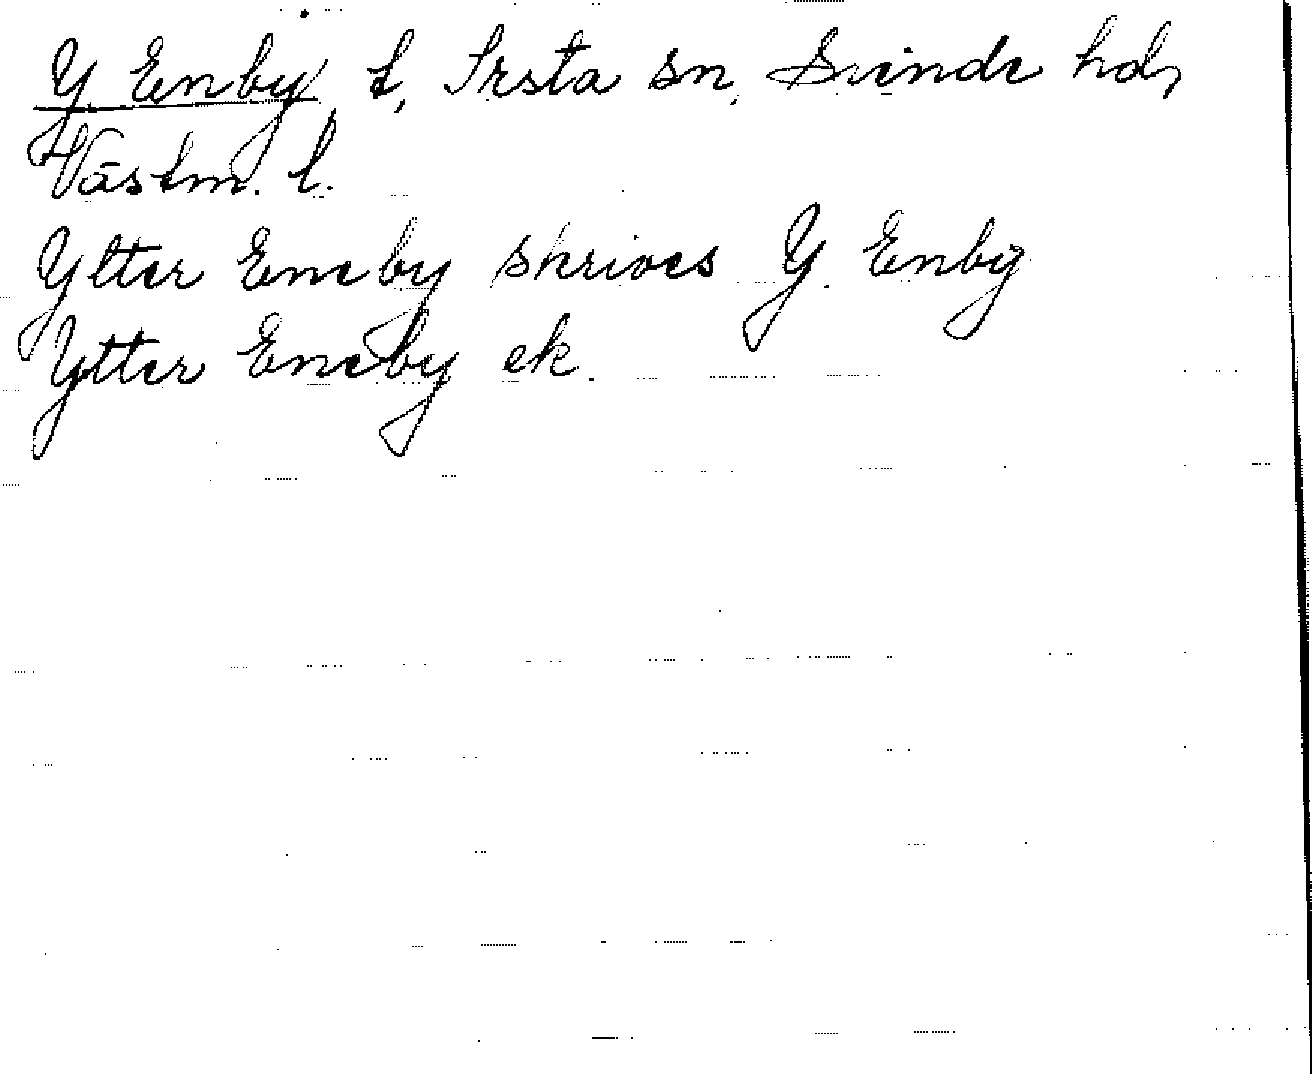 Y. Enby t, Irsta sn, Siende hd,
Västm. l.
Ytter Eneby skrives Y. Enby
Ytter Eneby ek.